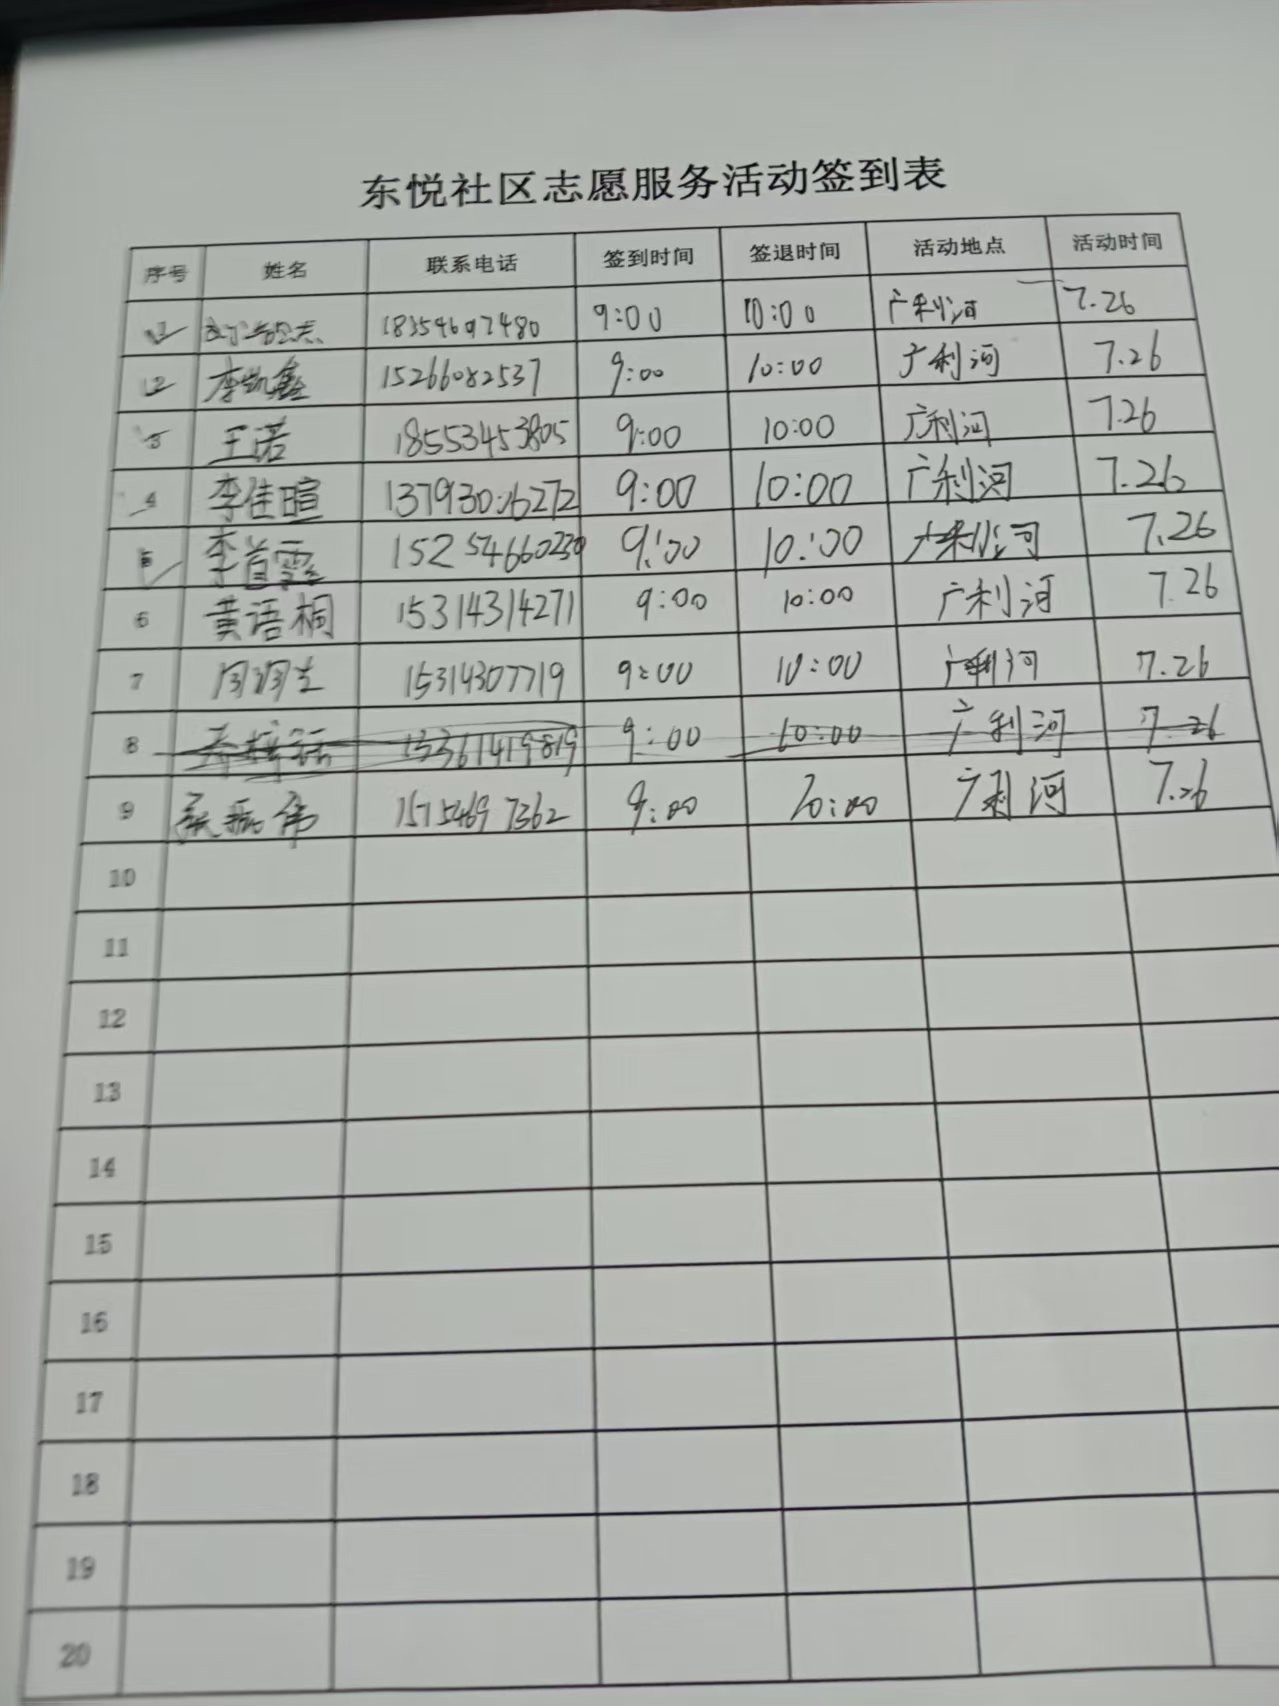 东悦社区志愿服务活动签到表
序号 姓名 联系电话 签到时间 签退时间 活动地点 活动时间
1 18354607480 9:00 10:00 广利河 7.26
2 李凯鑫 15266082537 9:00 10:00 广利河 7.26
3 王诺 18553453805 9:00 10:00 广利河 7.26
4 李佳暄 9:00 10:00 广利河 7.26
5 李首霏 15254660230 9:00 10:00 广利河 7.26
6 黄语桐 15314314271 9:00 10:00 广利河 7.26
7 15314307719 9:00 10:00 广利河 7.26
8 9:00 10:00 广利河 7.26
9 15154697362 9:00 10:00 广利河 7.26
10
11
12
13
14
15
16
17
18
19
20